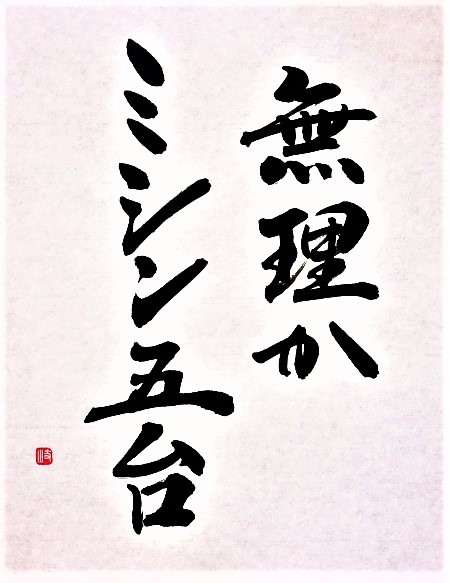 無理か
ミシン五台